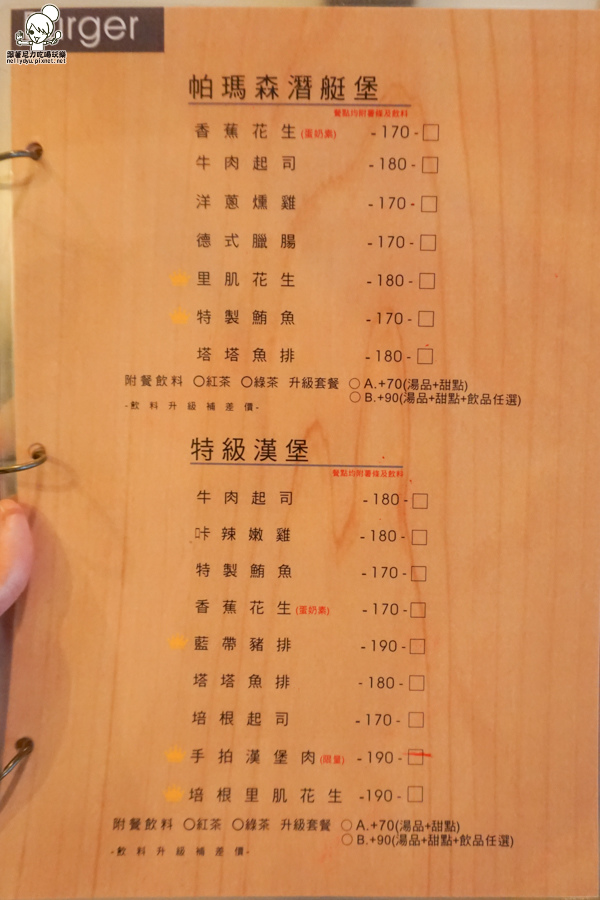 urger
跟著尼力吃喝玩樂
nellydyu.pixnet.net
帕瑪森潛艇堡
餐點均附薯條及飲料
香蕉花生(蛋奶素) -170-□
牛肉起司 -180-□
洋蔥燻雞 -170-□
德式臘腸 -170-□
里肌花生 -180-□
特製鮪魚 -170-□
塔塔魚排 -180-□
附餐飲料 ○紅茶 ○綠茶 升級套餐 ○ A.+70(湯品+甜點)
○ B.+90(湯品+甜點+飲品任選)
-飲料升級補差價-
特級漢堡
餐點均附薯條及飲料
牛肉起司 -180-□
咔辣嫩雞 -180-□
特製鮪魚 -170-□
香蕉花生(蛋奶素) -170-□
藍帶豬排 -190-□
塔塔魚排 -180-□
培根起司 -170-□
手拍漢堡肉(限量) -190-□
培根里肌花生 -190-□
附餐飲料 ○紅茶 ○綠茶 升級套餐 ○ A.+70(湯品+甜點)
○ B.+90(湯品+甜點+飲品任選)
-飲料升級補差價-